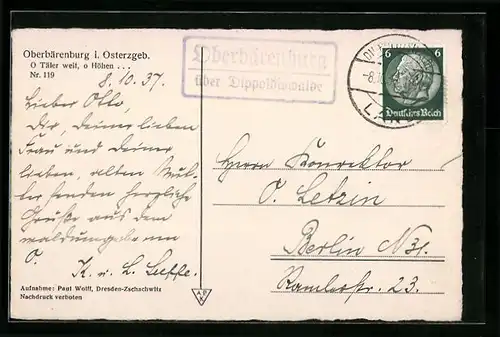 Oberbärenburg i. Osterzgeb.
O Täler weit, o Höhen . . .
Nr. 119
8. 10. 37.
Lieber Otto,
Dir, Deiner lieben
Frau und Deiner
lieben, alten Mut-
ter senden herzliche
Grüße aus dem
O.
K. u. L.
Aufnahme: Paul Wolff, Dresden-Zschachwitz
Nachdruck verboten
Oberbärenburg
über Dippoldiswalde
6 6
Deutsches Reich
-8.
LAND
Herrn Konrektor
O. Letzin
Berlin N31.
Ramlerstr. 23.